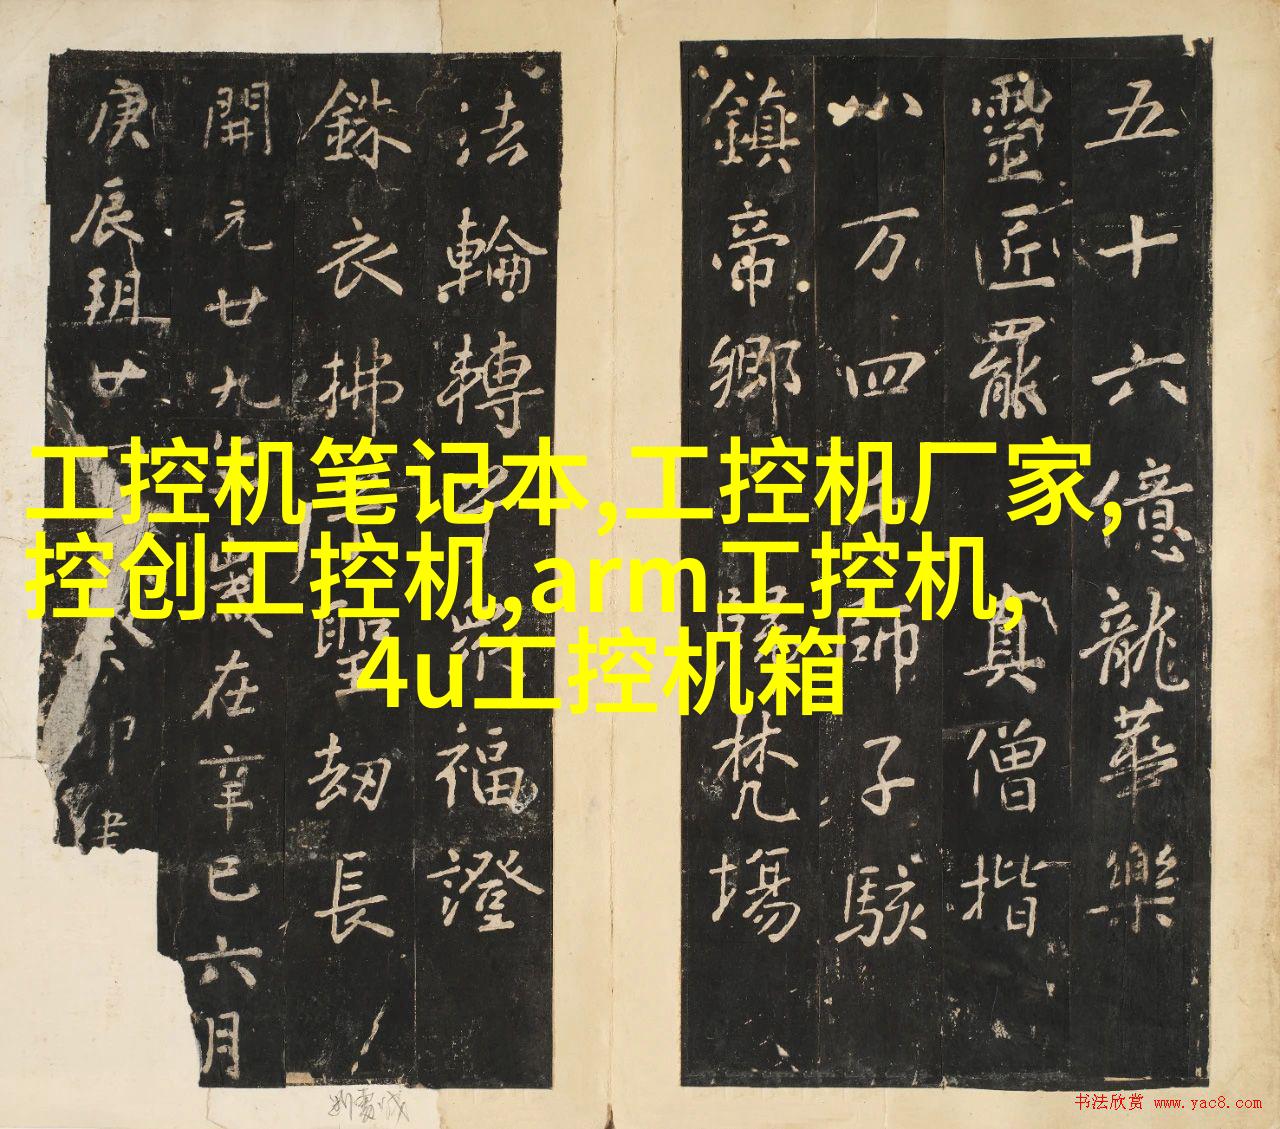 工控机笔记本,工控机厂家,
控创工控机,arm工控机,
4u工控机箱
五十六億龍華樂
靈匠罷真僧揩
八万四千師子駭
鎮帝鄉勝梵場
法輪轉兮眾福證
銖衣拂聖劫長
開元廿九年歲在辛巳六月
庚辰朔廿癸卯建
书法欣赏 www.yac8.com